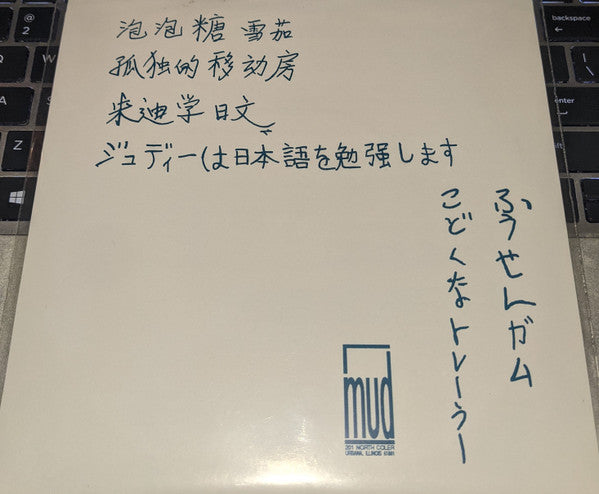 泡泡糖 雪茄
孤独的移动房
朱迪学日文
ジュディーは日本語を勉強します
ふうせんガム
こどくなトレーラー
mud
201 NORTH COLER
URBANA, ILLINOIS 61801
@
2
A
Z
backspace
enter